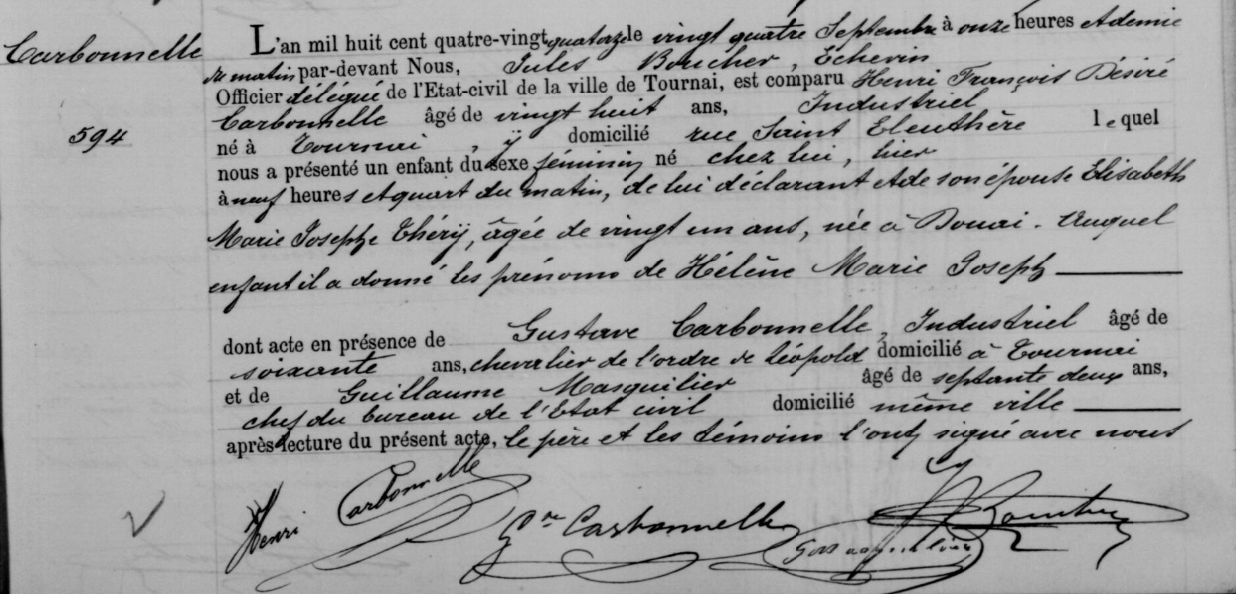 Carbonnelle
594
L'an mil huit cent quatre-vingt quatorze le vingt quatre Septembre à onze heures et demie
du matin par-devant Nous, Jules Boucher, Echevin
Officier délégué de l'Etat-civil de la ville de Tournai, est comparu Henri François Désiré
Carbonnelle âgé de vingt huit ans, Industriel
né à Tournai, y domicilié rue Saint Eleuthère lequel
nous a présenté un enfant du sexe féminin né chez lui, hier
à neuf heures et quart du matin, de lui déclarant et de son épouse Elisabeth
Marie Josephe Théry, âgée de vingt un ans, née à Douai. Auquel
enfant il a donné les prénoms de Hélène Marie Joseph
dont acte en présence de Gustave Carbonnelle, Industriel âgé de
soixante ans, chevalier de l'ordre de Léopold domicilié à Tournai
et de Guillaume Masquilier âgé de septante deux ans,
chef du bureau de l'Etat civil domicilié même ville
après lecture du présent acte, le père et les témoins l'ont signé avec nous
Henri Carbonnelle
Gve Carbonnelle